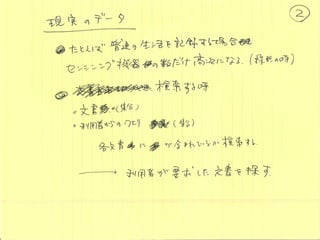 ②
現実のデータ
たとえば 普通の生活を記録する場合
センシング機器の数だけ高次になる。(線形の時)
検索する時
・文書 (集合)
・利用者からのクエリ (集合)
各文書に が含まれているか検索する
→ 利用者が要求した文書を探す